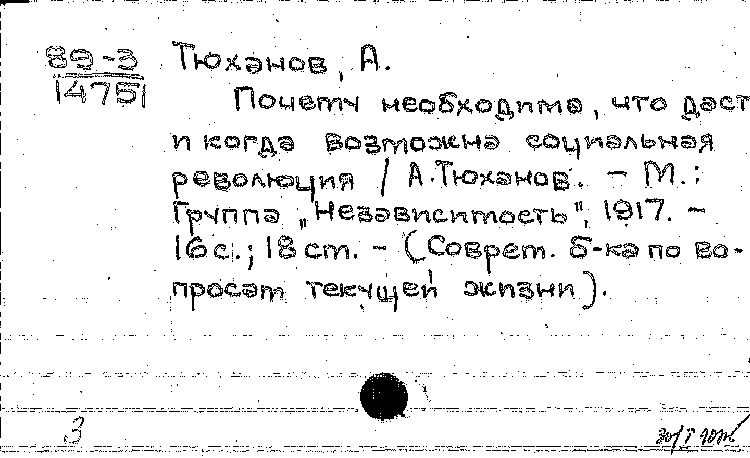 89-3 Тюханов, А.
14751
Почему необходима, что даст
и когда возможна социальная
революция / А.Тюханов. – М.:
Группа „Независимость", 1917. –
16с.; 18 см. – (Соврем. б-ка по во-
просам текущей жизни).
3